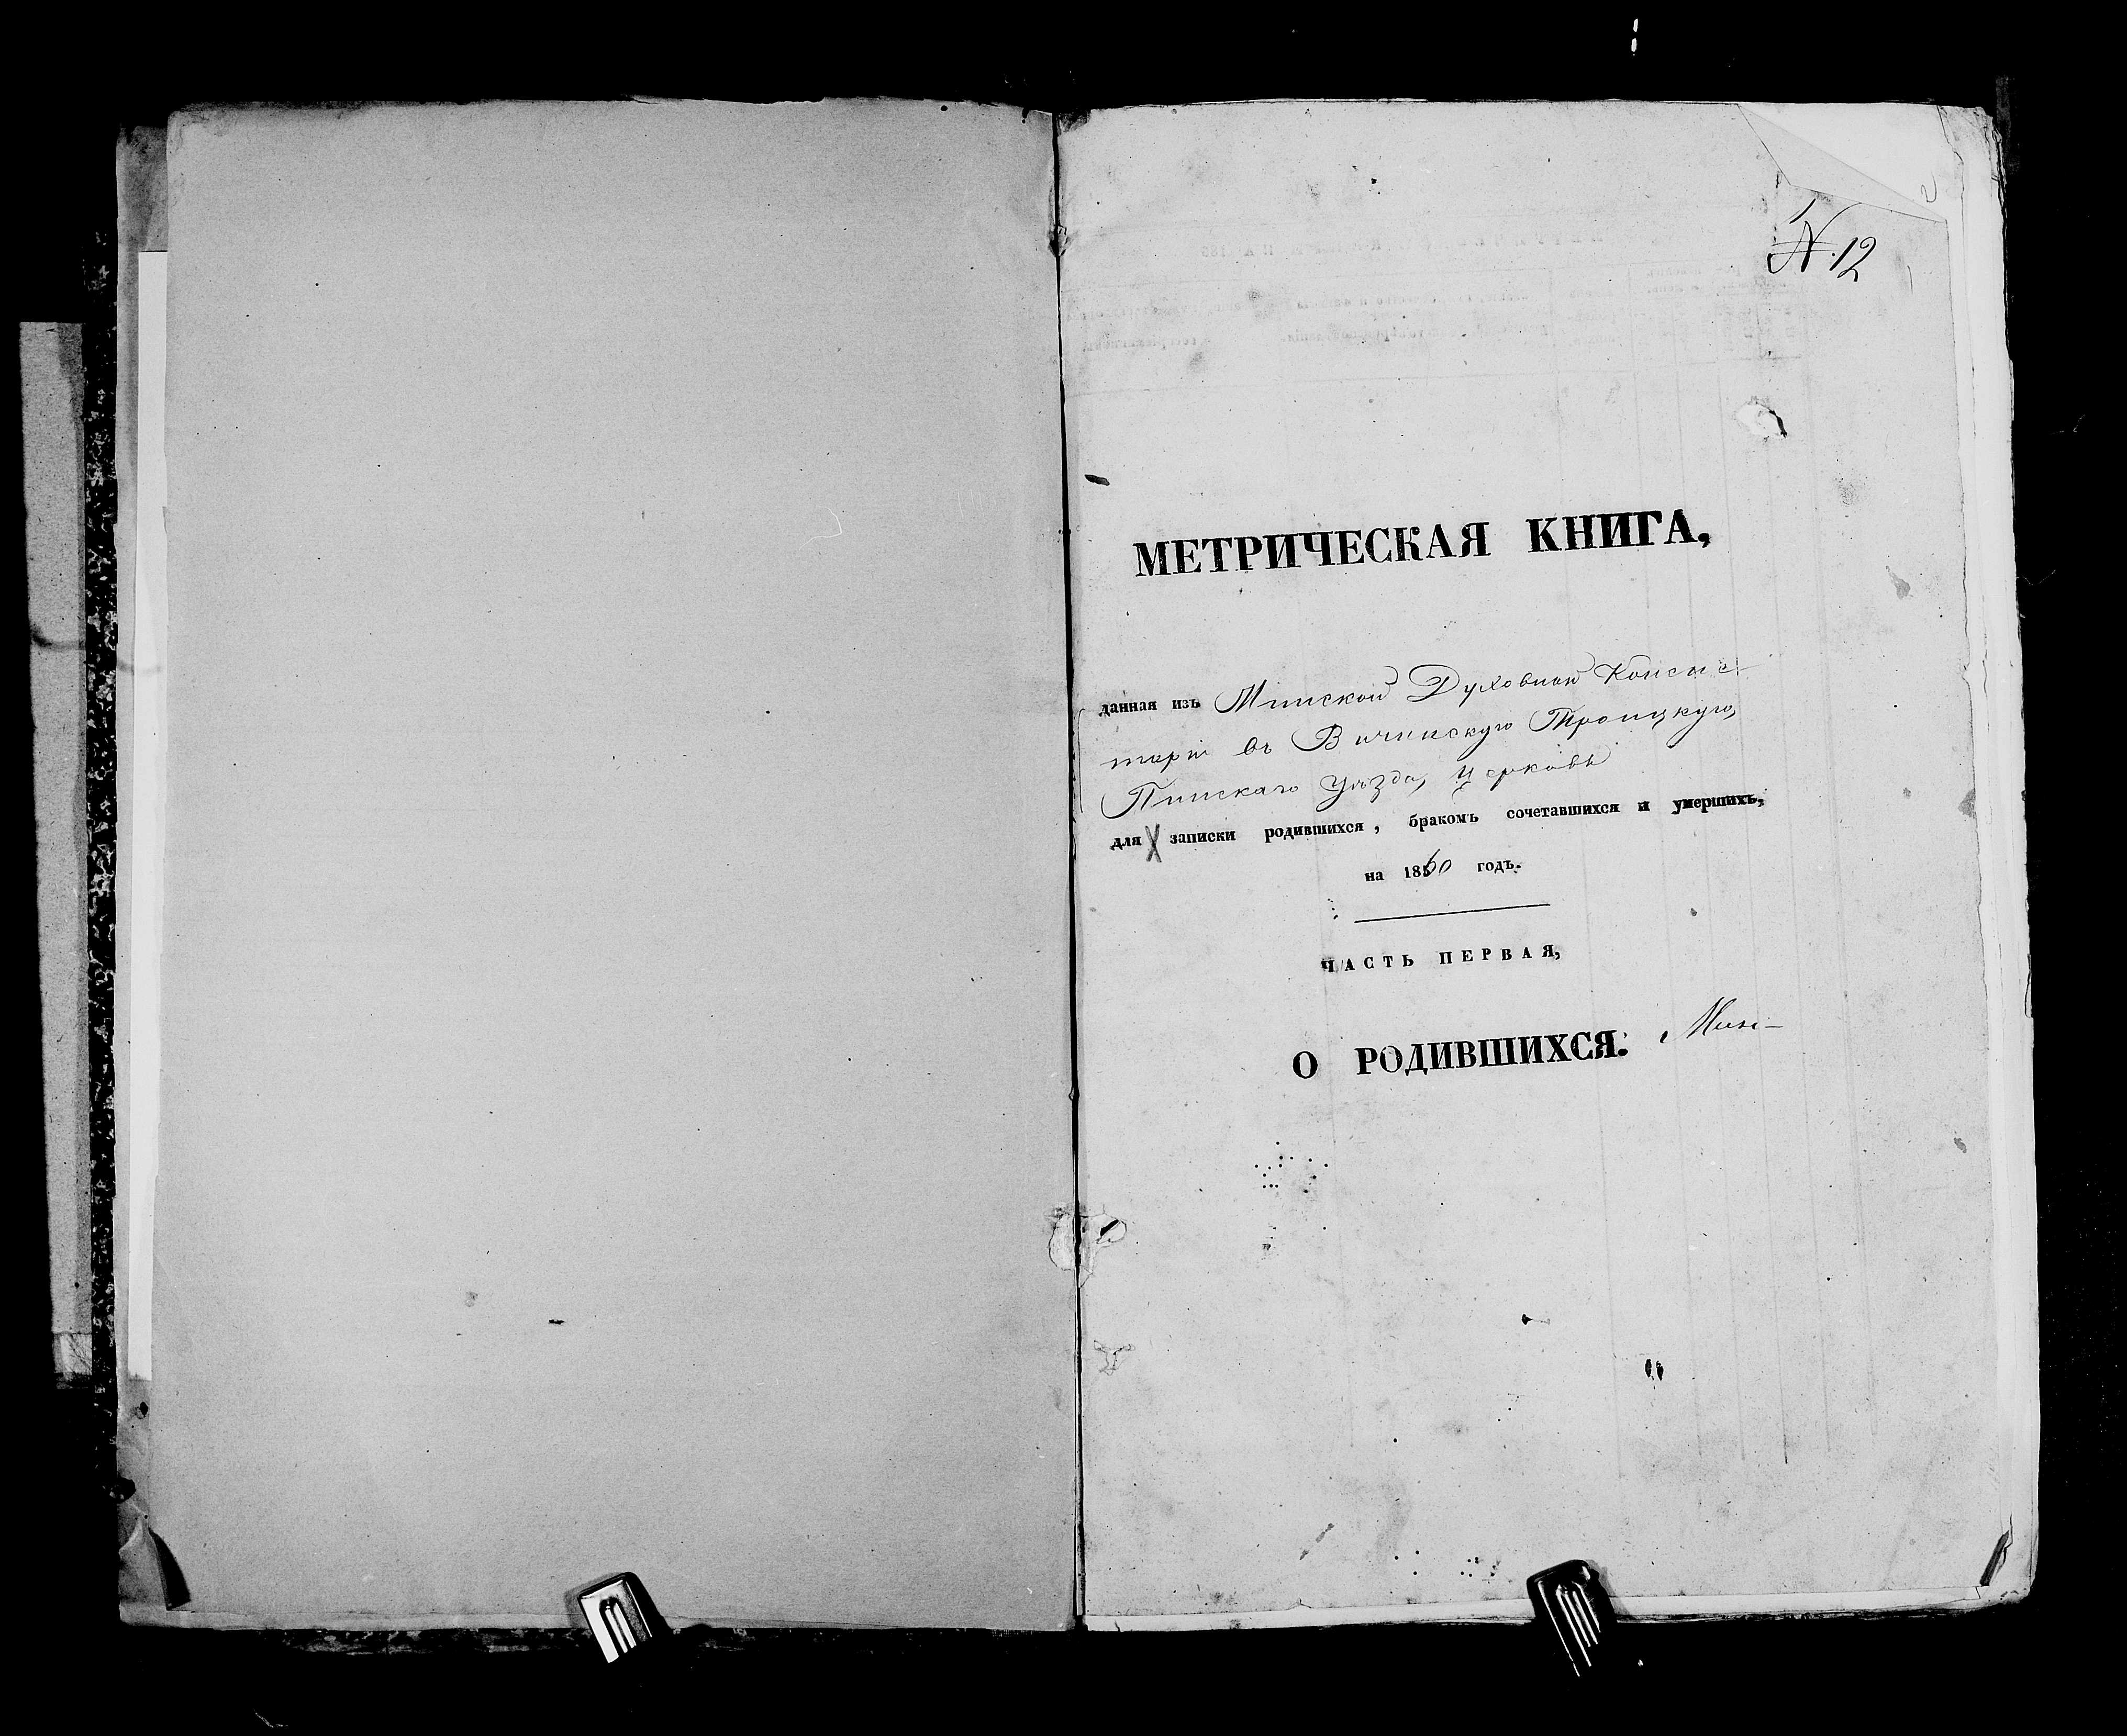 N. 12
МЕТРИЧЕСКАЯ КНИГА,
данная изъ Минской Духовной Консис-
торіи въ Вичинскую Троицкую,
Пинскаго уѣзда, церковь
для записки родившихся, бракомъ сочетавшихся и умершихъ,
на 1860 годъ.
ЧАСТЬ ПЕРВАЯ,
О РОДИВШИХСЯ.